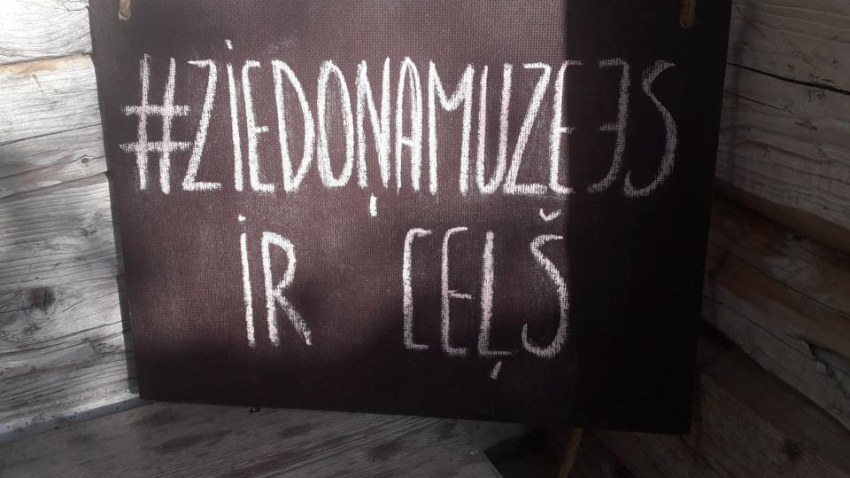 #ZIEDOŅAMUZEJS
IR CEĻŠ